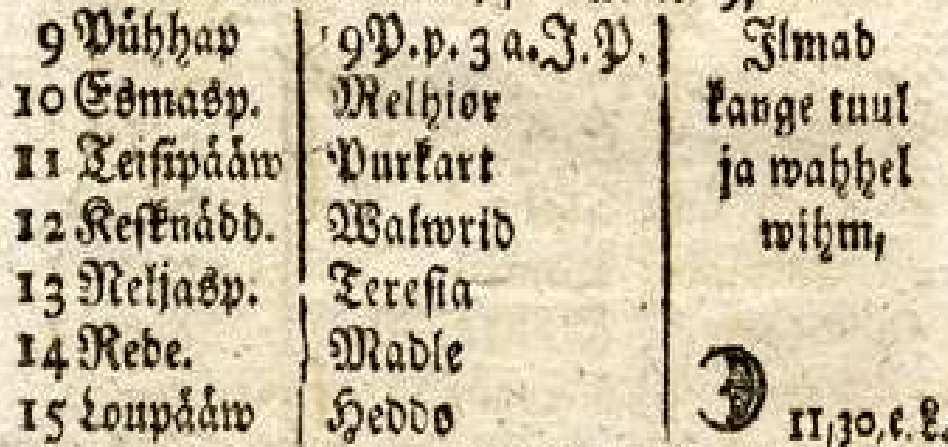 9 Pühhap 9 P. p. 3 a. J. P. Ilmad
10 Esmasp. Melhior kange tuul
11 Teisipääw Purkart ja wahhel
12 Kesknädd. Walwrid wihm,
13 Neljasp. Teresia
14 Rede. Madle
15 Loupääw Heddo 11,30, e. L.